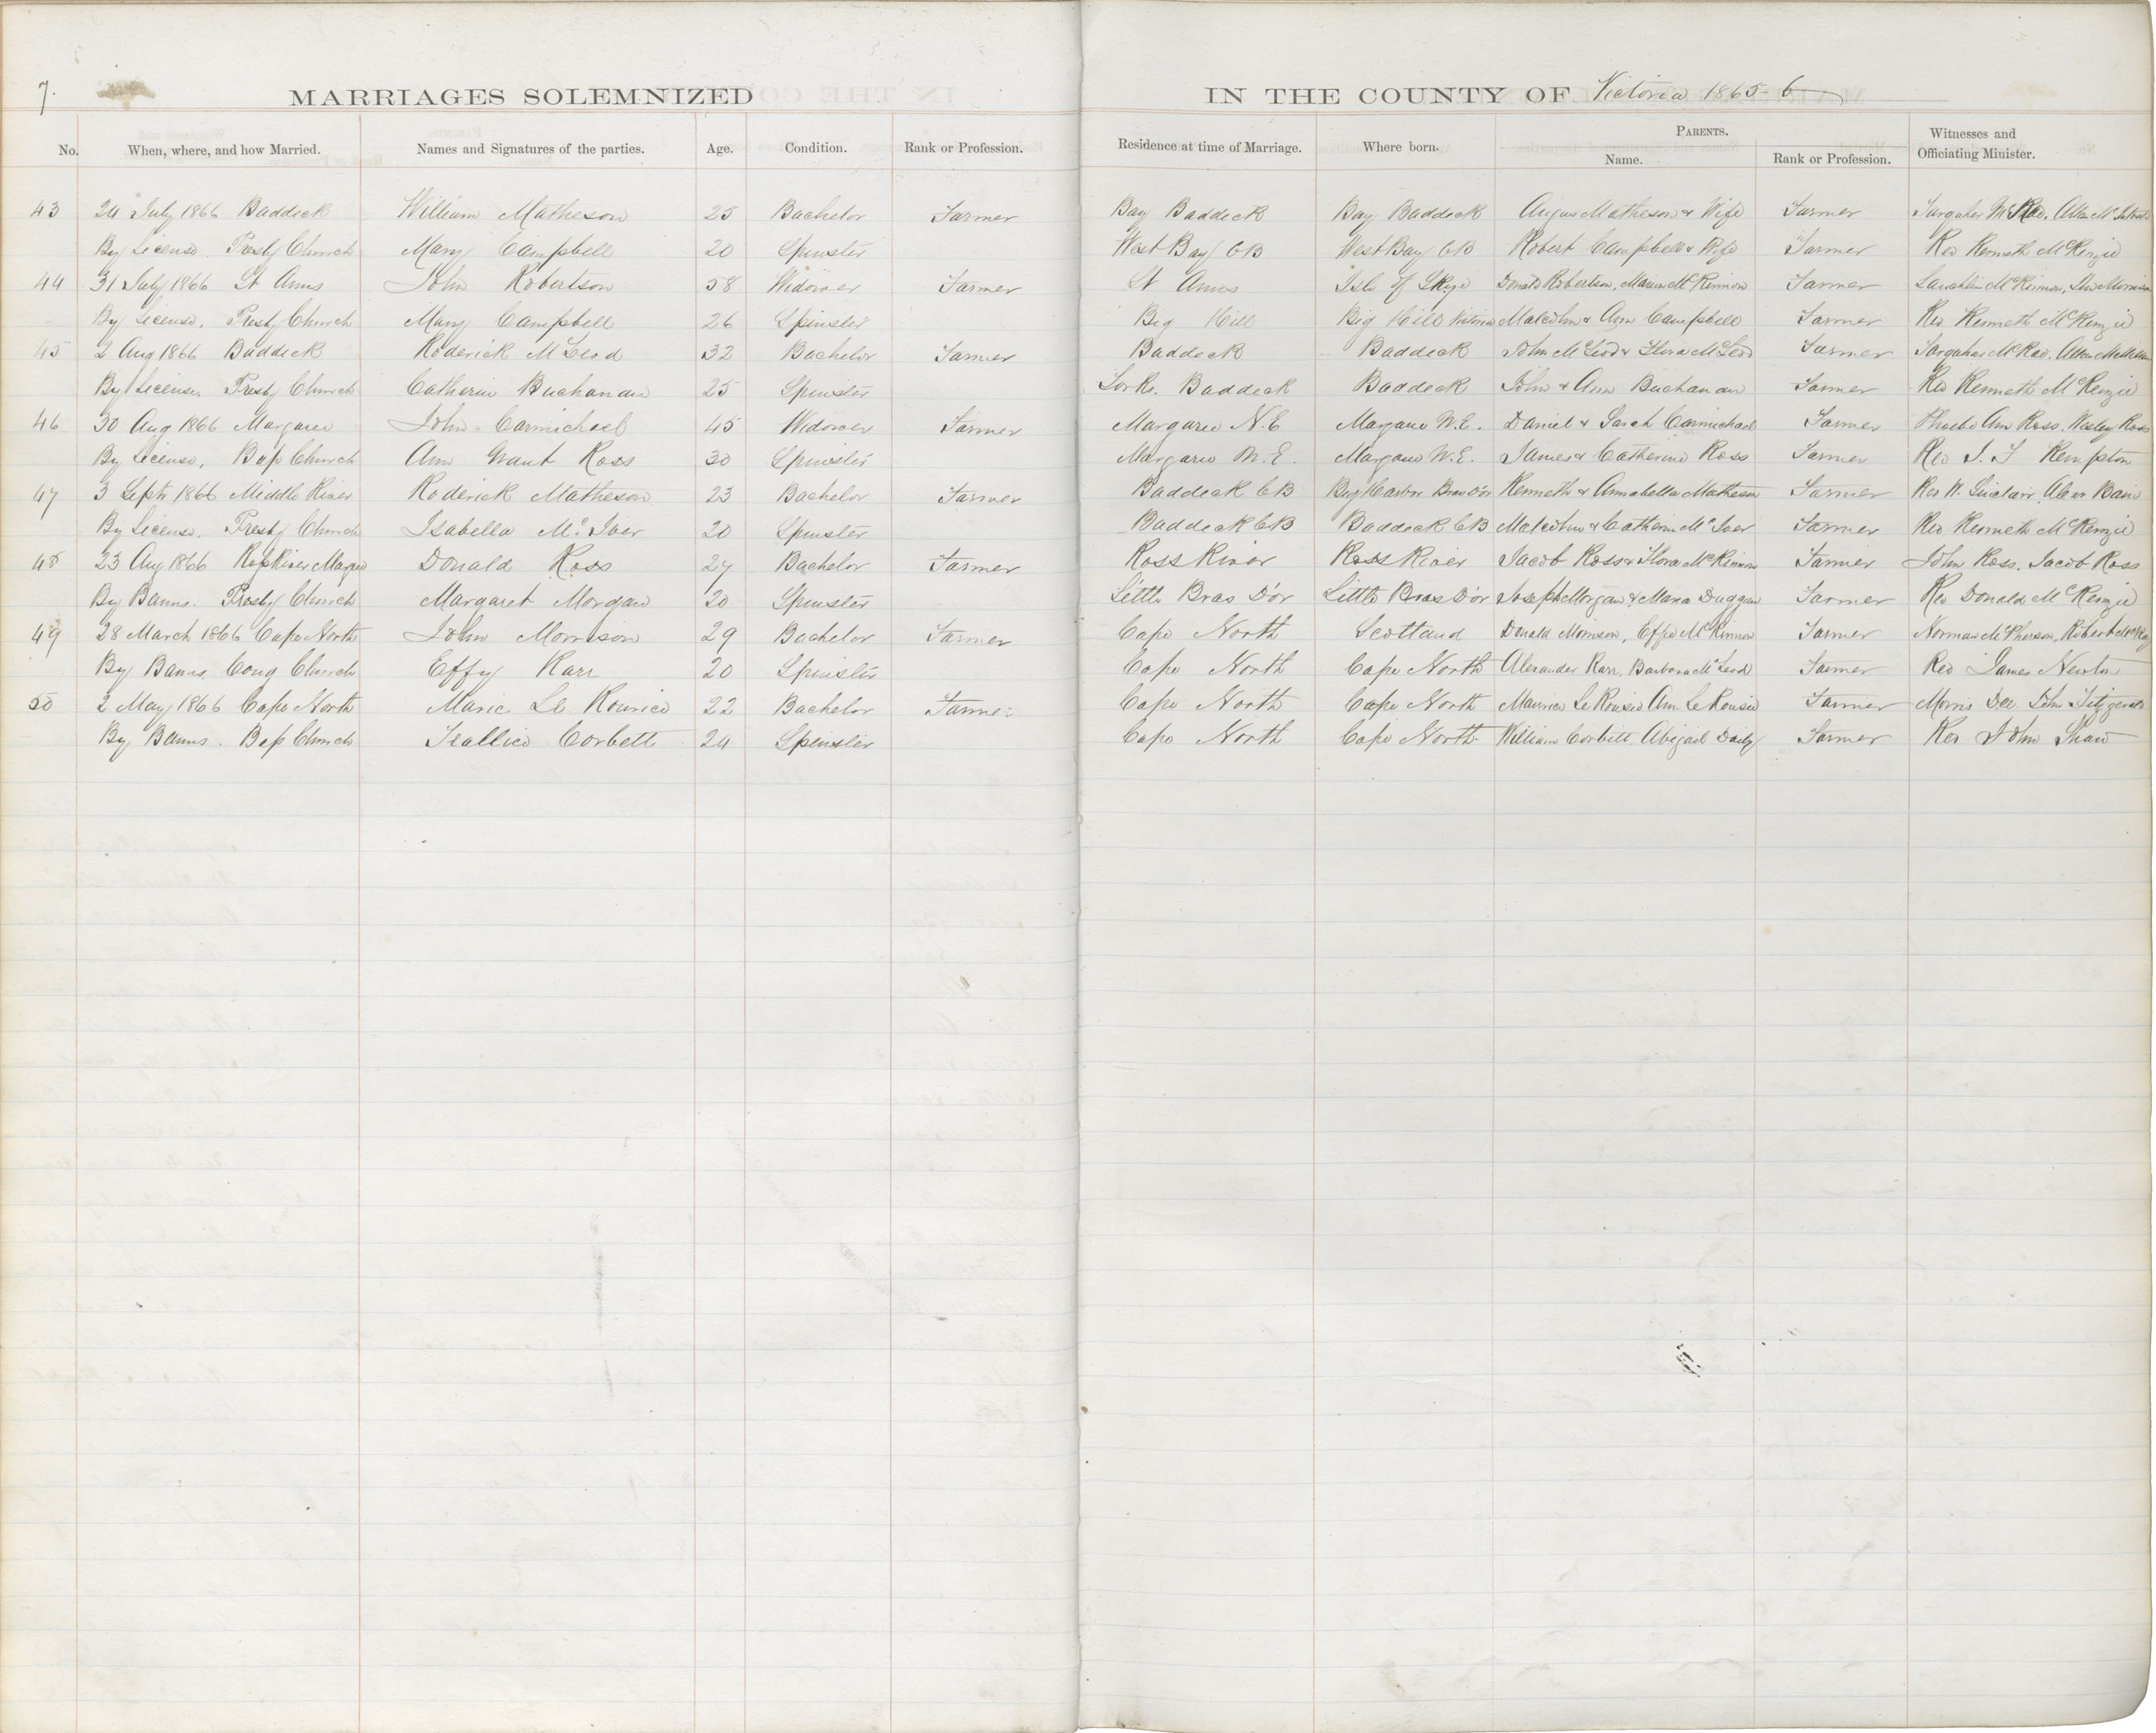 7.
MARRIAGES SOLEMNIZED IN THE COUNTY OF Victoria 1865-6
No. When, where, and how Married. Names and Signatures of the parties. Age. Condition. Rank or Profession. Residence at time of Marriage. Where born. PARENTS. Name. Rank or Profession. Witnesses and Officiating Minister.
43 24 July 1866 Baddeck William Matheson 25 Bachelor Farmer Bay Baddeck Bay Baddeck Angus Matheson & Wife Farmer Farquher McRae. Allan
By License. Presby Church Mary Campbell 20 Spinster West Bay CB West Bay CB Robert Campbell & Wife Farmer Rev Kenneth McKenzie
44 31 July 1866 St Anns John Robertson 58 Widower Farmer St Anns Isle of Skye Donald Robertson, Marion McKinnon Farmer Lauchlin McKinnon, Morrison
By License. Presby Church Mary Campbell 26 Spinster Big Hill Big Hill Victoria Malcolm & Ann Campbell Farmer Rev Kenneth McKenzie
45 2 Aug 1866 Baddeck Roderick McLeod 32 Bachelor Farmer Baddeck Baddeck John McLeod & Flora McLeod Farmer Farquher McRae. Allan McMillan
By License. Presby Church Catherine Buchanan 25 Spinster Forks. Baddeck Baddeck John & Ann Buchanan Farmer Rev Kenneth McKenzie
46 30 Aug 1866 Margaree John Carmichael 45 Widower Farmer Margaree N.E Margaree N.E. Daniel & Sarah Carmichael Farmer Phoebe Ann Ross. Wesley Ross
By License. Bap Church Ann Grant Ross 30 Spinster Margaree N.E. Margaree N.E. James & Catherine Ross Farmer Rev J. F Kempton
47 3 Septr 1866 Middle River Roderick Matheson 23 Bachelor Farmer Baddeck CB Big Harbor Bras D'or Kenneth & Annabella Matheson Farmer Rev W. Sinclair. Alexr Bain
By License. Presby Church Isabella McIver 20 Spinster Baddeck CB Baddeck CB Malcolm & Catherine McIver Farmer Rev Kenneth McKenzie
48 23 Aug 1866 Ross River Margaree Donald Ross 27 Bachelor Farmer Ross River Ross River Jacob Ross & Flora McKinnon Farmer John Ross. Jacob Ross
By Banns. Presby Church Margaret Morgan 20 Spinster Little Bras D'or Little Bras D'or Joseph Morgan & Maria Duggan Farmer Rev Donald McKenzie
49 28 March 1866 Cape North John Morrison 29 Bachelor Farmer Cape North Scotland Donald Morrison, Effie McKinnon Farmer Norman McPherson, Robert McKay
By Banns Cong Church Effy Karr 20 Spinster Cape North Cape North Alexander Karr, Barbara McLeod Farmer Rev James Newton
50 2 May 1866 Cape North Maric Le Rourico 22 Bachelor Farmer Cape North Cape North Maurice Ann Farmer Morris Dee. John Fitzgerald
By Banns. Bap Church Corbett 24 Spinster Cape North Cape North William Corbett, Abigail Daily Farmer Rev John Shaw